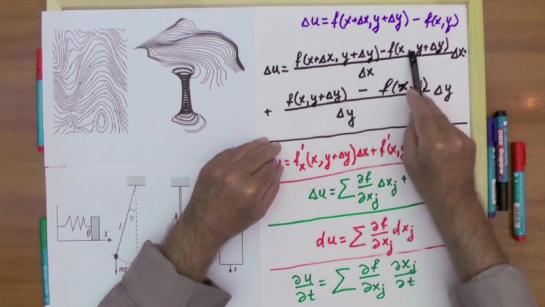 Δu = f(x+Δx, y+Δy) - f(x,y)
Δu = f(x+Δx, y+Δy) - f(x, y+Δy) / Δx Δx
+ f(x,y+Δy) - f(x, / Δy Δy
= f'x(x, y+Δy)Δx + f'(x,
Δu = Σ ∂f/∂xj Δxj +
du = Σ ∂f/∂xj dxj
∂u/∂t = Σ ∂f/∂xj ∂xj/∂t
x
l
φ